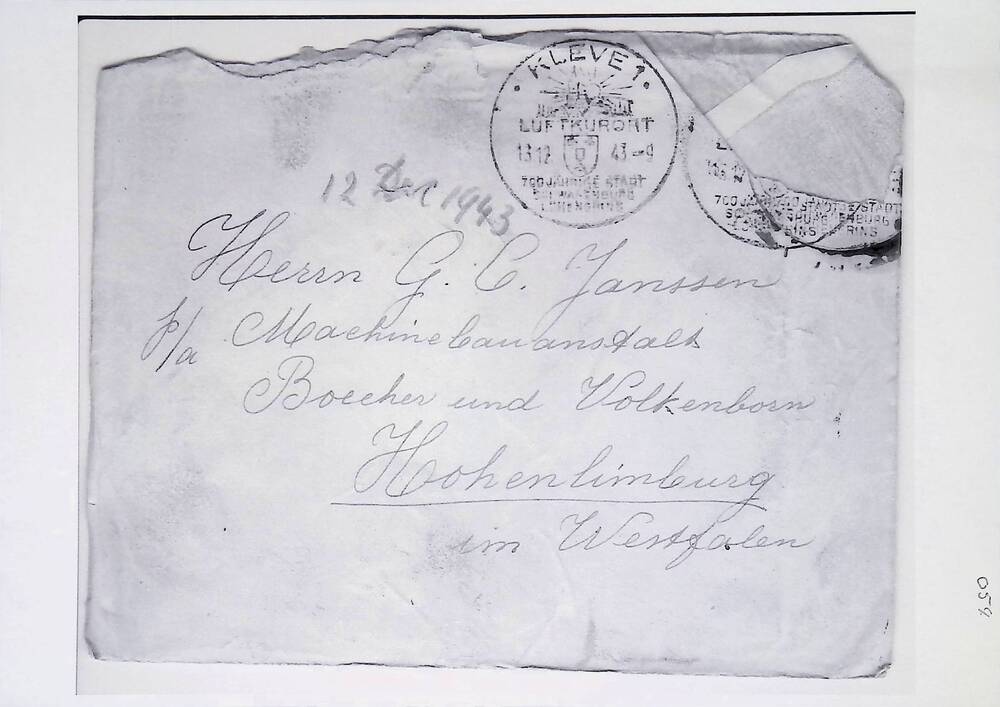 KLEVE 1
LUFTKURORT
13.12 43-9
700 JÄHRIGE STADT
SCHWANENBURG
LOHENGRINS
12 Dec 1943
Herrn G. C. Janssen
p/a Machinebauanstalt
Boecher und Volkenborn
Hohenlimburg
im Westfalen
054